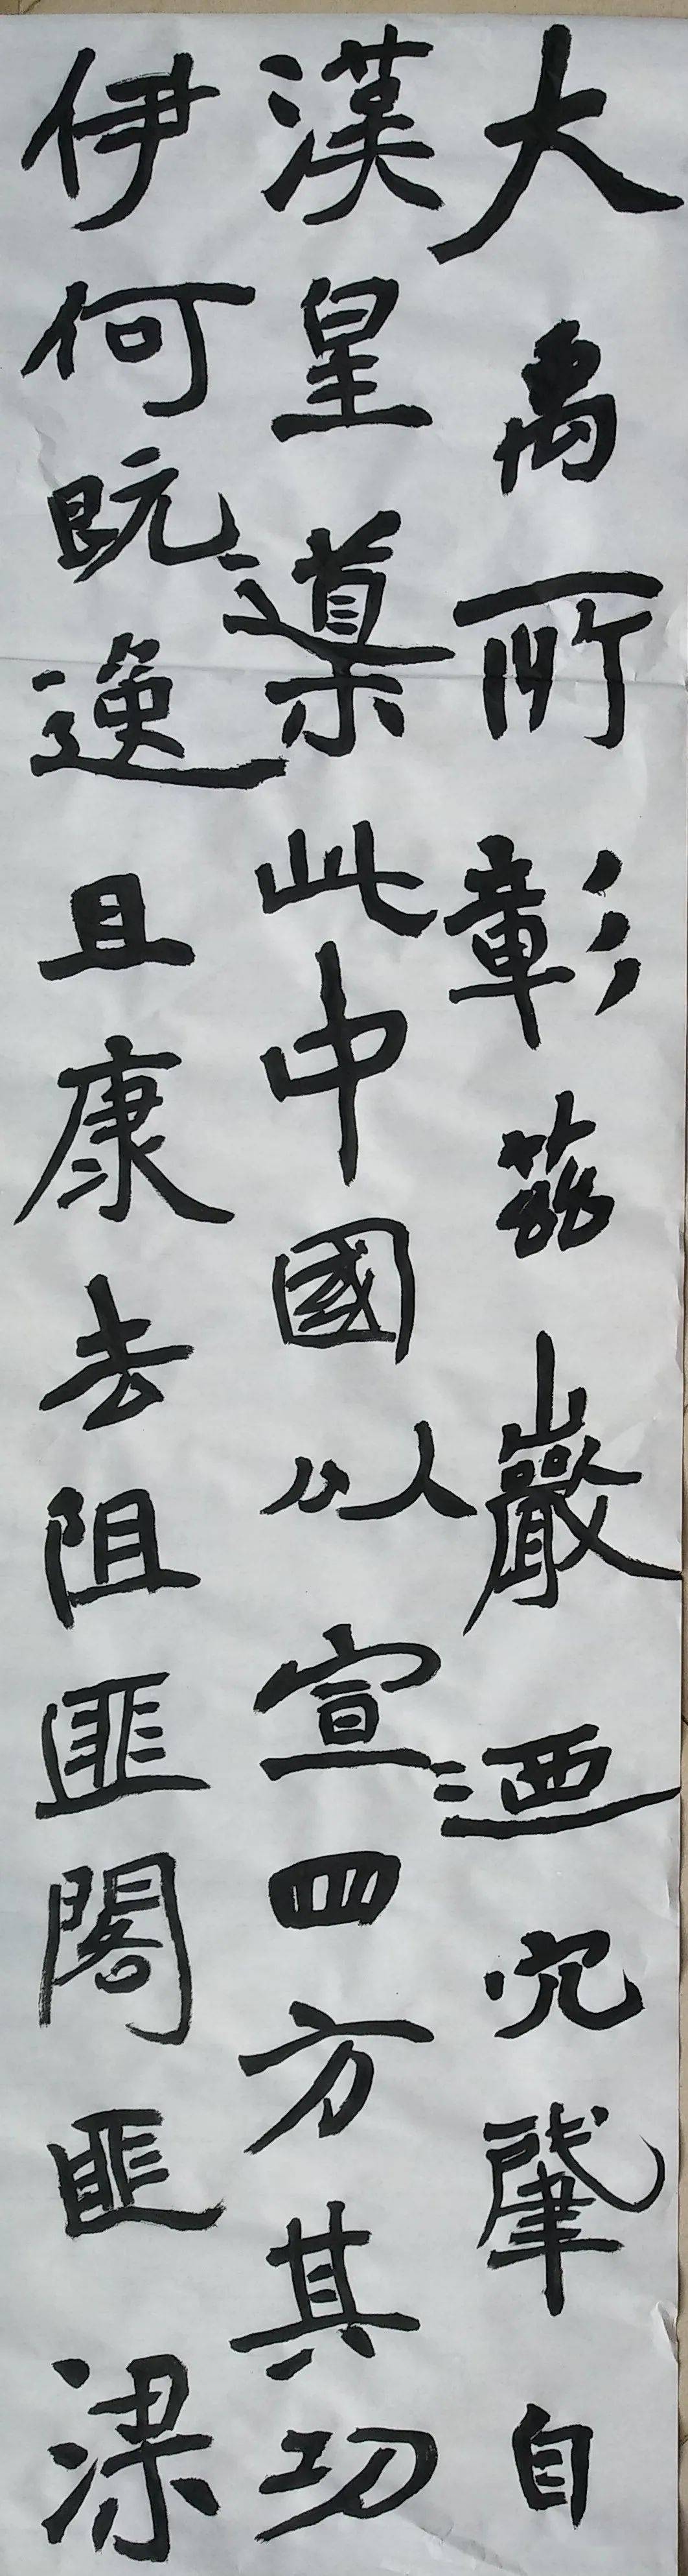 大禹所彰茲巖迺穴肇自
漢皇導此中國以宣四方其功
伊何既逸且康去阻匪閣匪梁